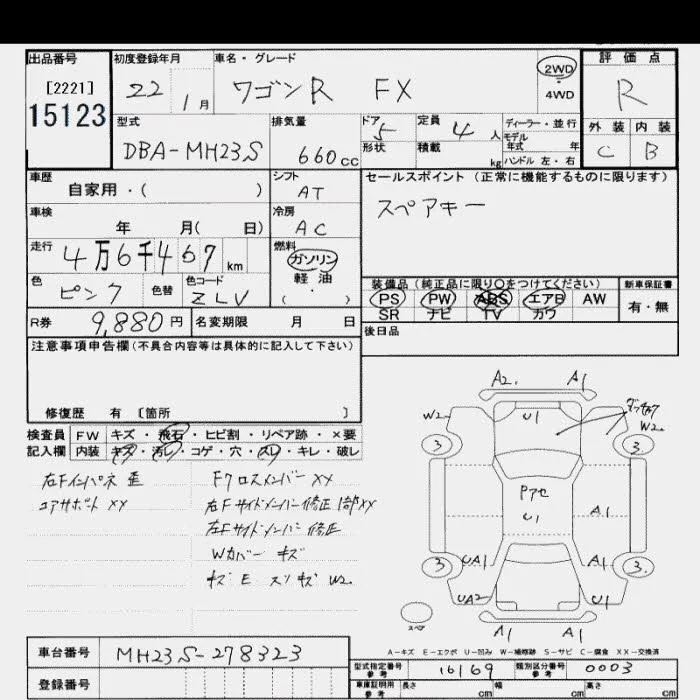 出品番号 初度登録年月 車名・グレード 評価点
[2221] 22 1月 ワゴンR FX 2WD R
15123 4WD
型式 排気量 ドア 定員 ディーラー・並行 外装 内装
DBA-MH23S 660cc 5 4人 モデル年式 年 C B
形状 積載 kg ハンドル 左・右
車歴 シフト セールスポイント (正常に機能するものに限ります)
自家用・( ) AT スペアキー
車検 冷房
年 月( 日) AC
走行 燃料
4万6千467km ガソリン
色 色替 色コード 軽油 装備品 (純正品に限り○をつけてください) 新車保証書
ピンク ZLV ( ・ ) PS PW ABS エアB AW 有・無
R券 9,880円 名変期限 月 日 SR ナビ TV カワ
後日品
注意事項申告欄(不具合内容等は具体的に記入して下さい)
修復歴 有 [箇所 ]
検査員 FW キズ・飛石・ヒビ割・リペア跡・×要
記入欄 内装 キズ・汚レ・コゲ・穴・スレ・キレ・破レ
右Fインパネ 歪 Fクロスメンバー XX
コアサポート XX 右Fサイドメンバー修正 1部XX
左Fサイドメンバー 修正
Wカバー キズ
キズ E スリキズ W2.
A2. A1
W2 U1 W2.
3 3
Pアセ
U1 A1
3 UA1 A1 3.
UA2 U1
スペア A1 A1
A-キズ E-エクボ U-凹み W-補修跡 S-サビ C-腐食 XX-交換済
車台番号 MH23S-278323 型式指定番号 参考 16169 類別区分番号 参考 0003
登録番号 車庫証明用 参考 長さ cm 幅 cm 高さ cm